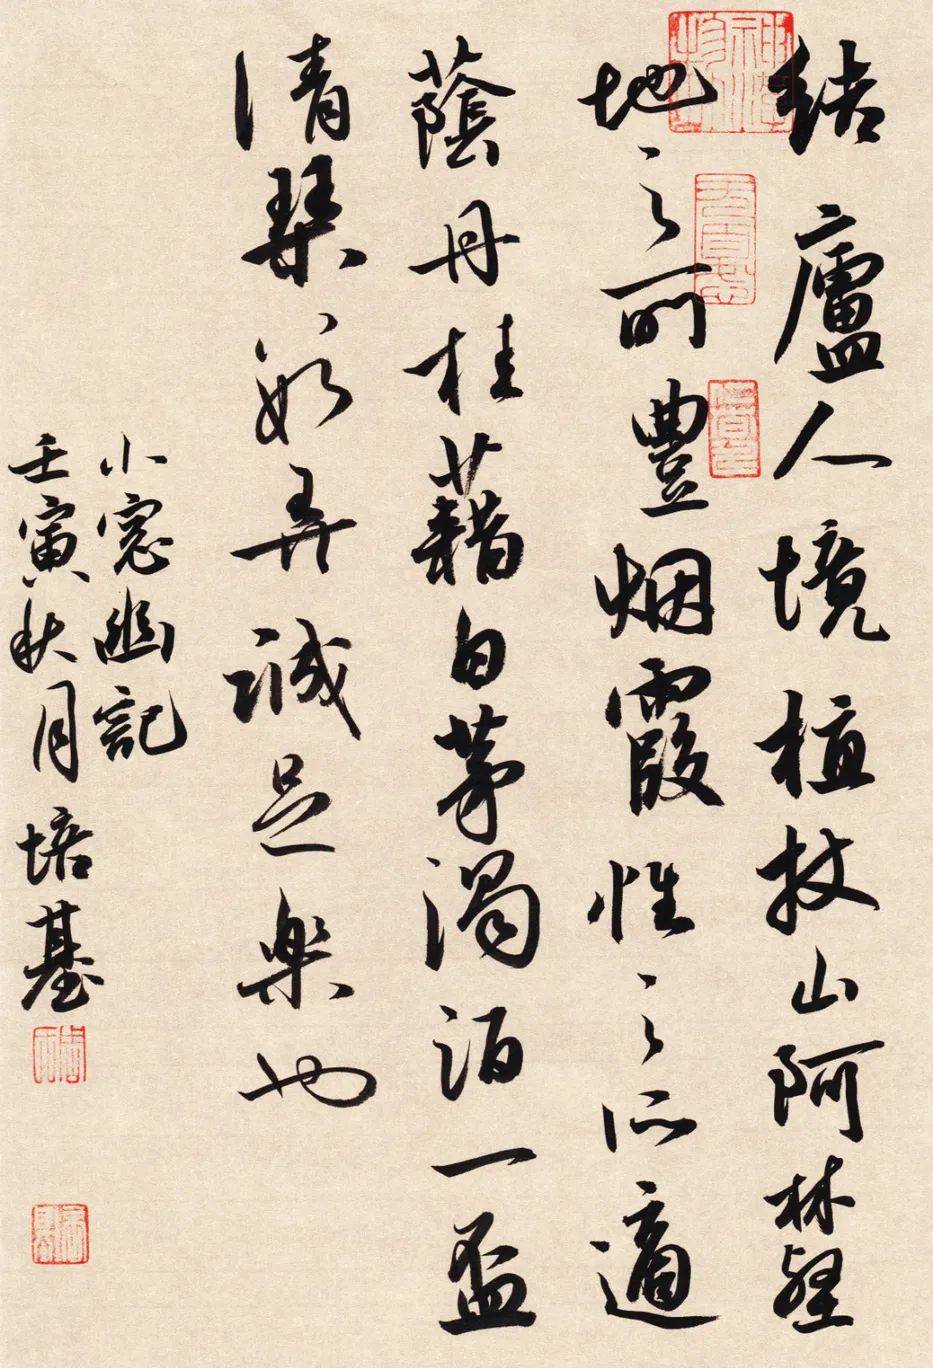 結廬人境植杖山阿林壑
地之所豐烟霞性之所適
蔭丹桂藉白茅濁酒一盃
清琴数弄誠足楽也
小窓幽記
壬寅秋月培基